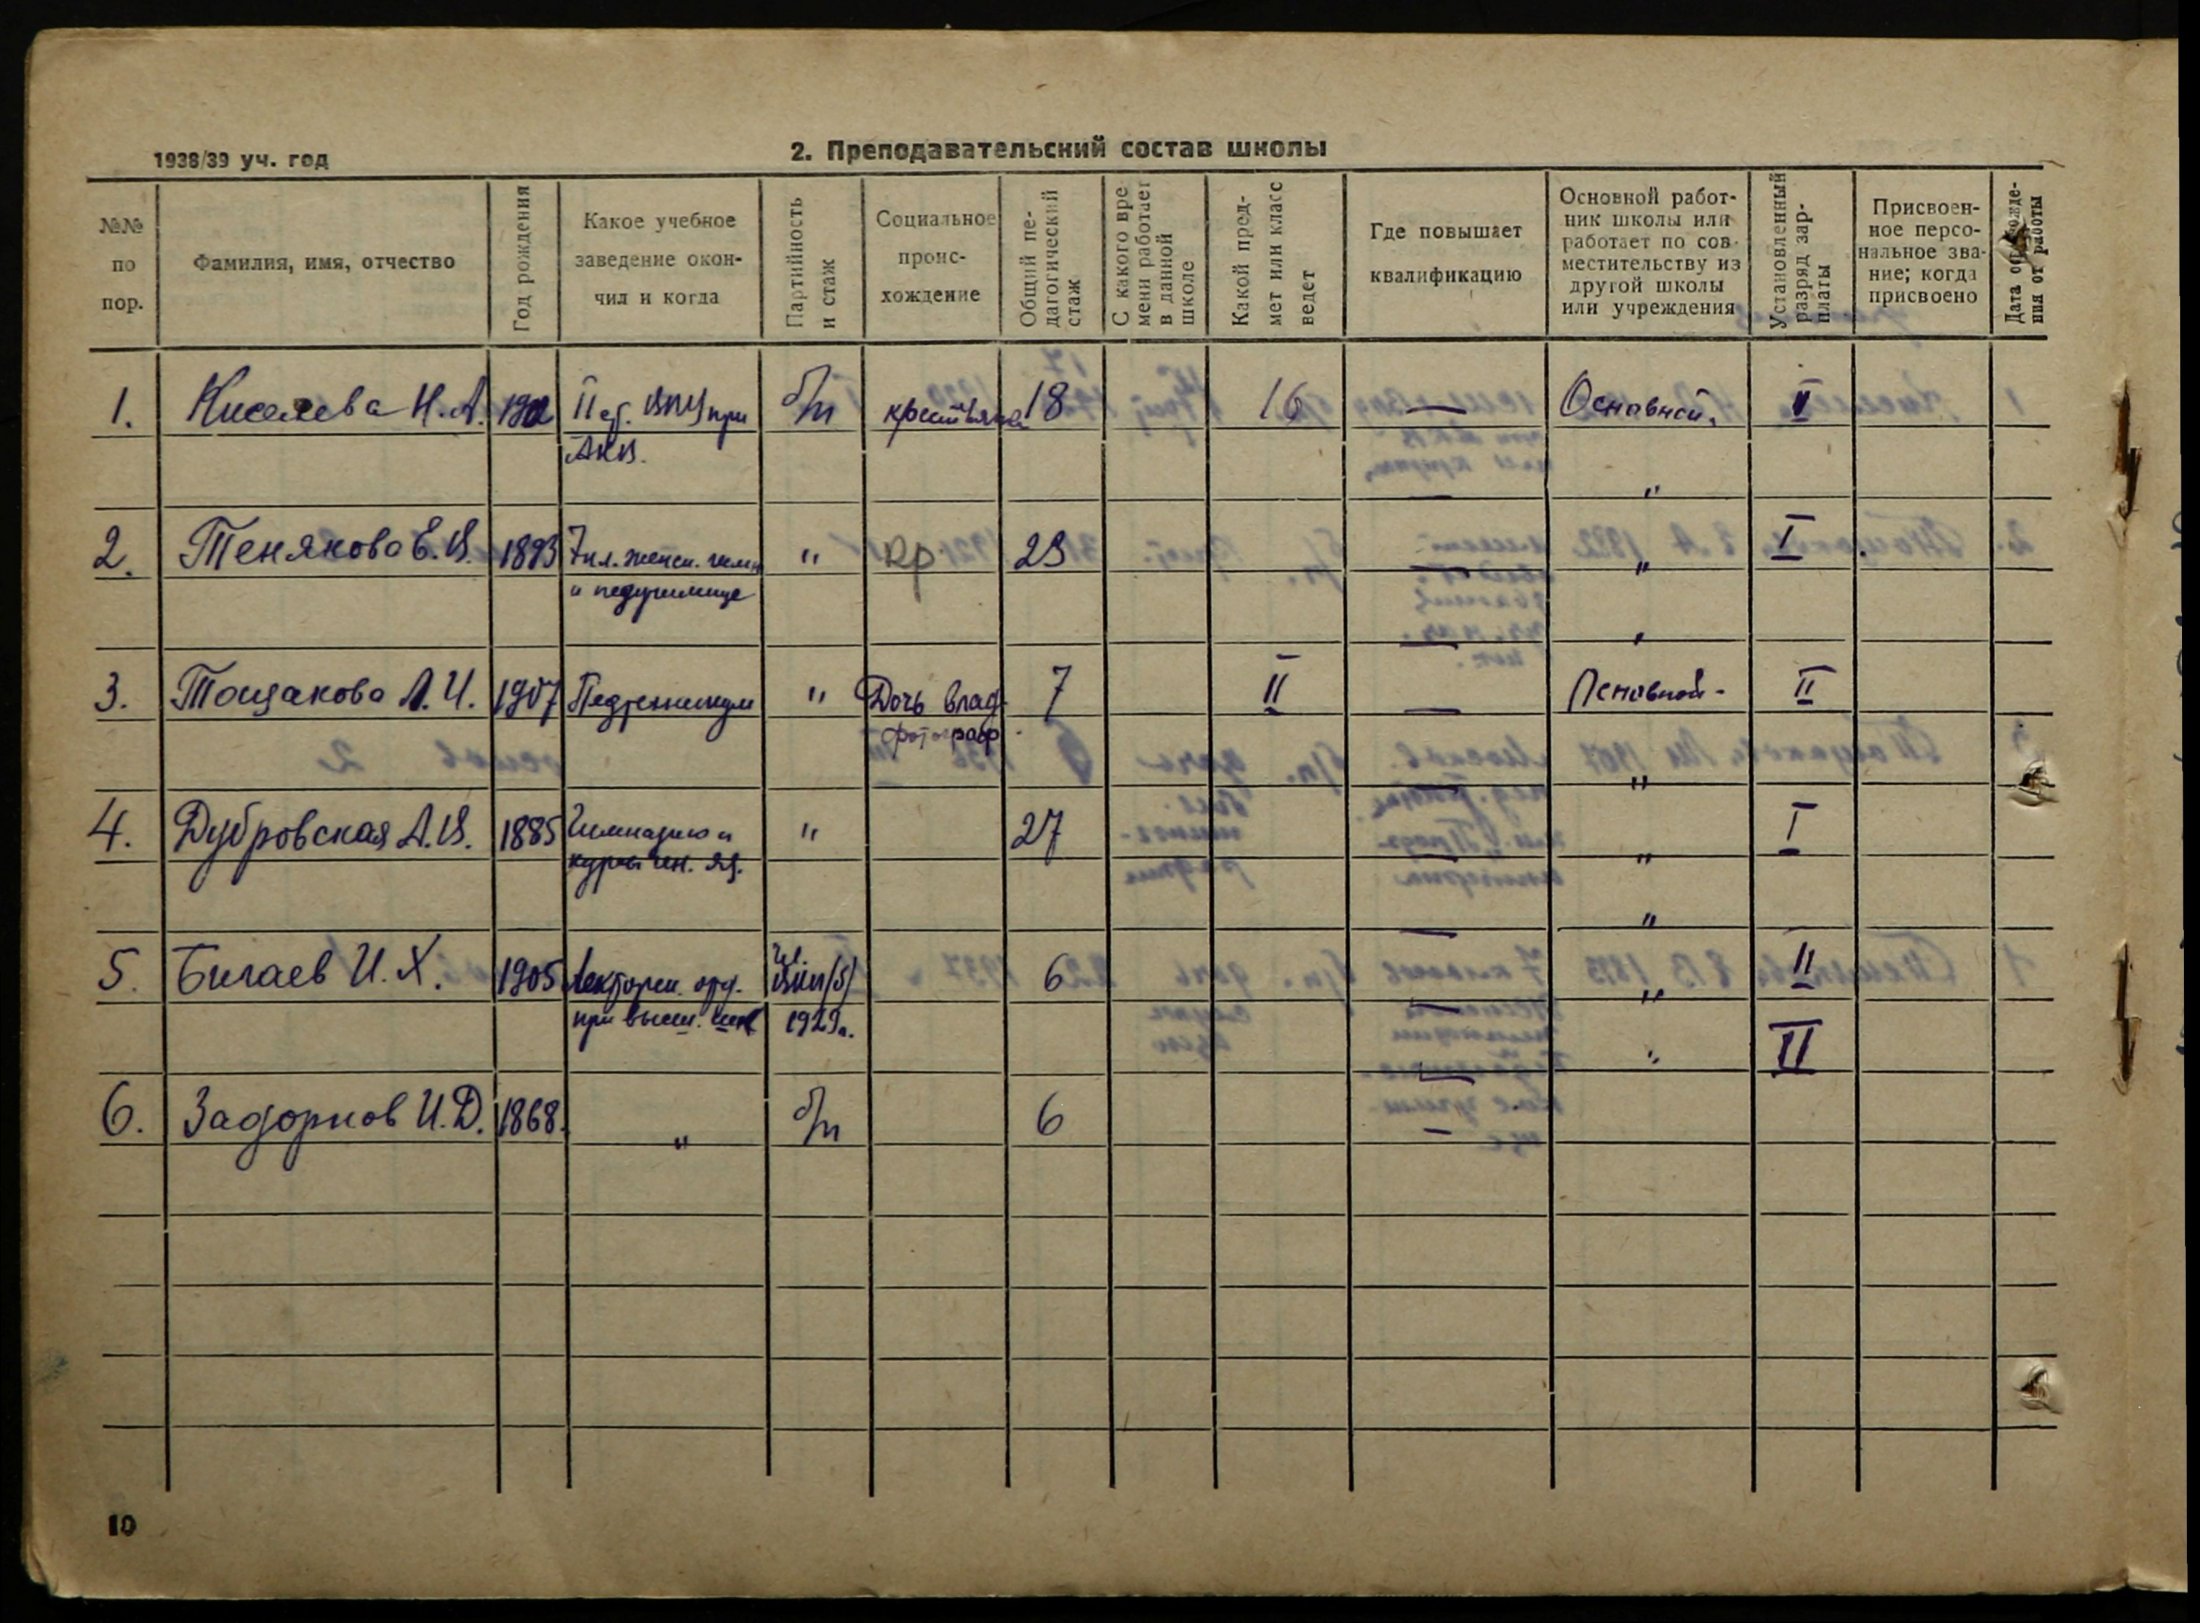 1938/39 уч. год
2. Преподавательский состав школы
№№ по пор.
Фамилия, имя, отчество
Год рождения
Какое учебное заведение окончил и когда
Партийность и стаж
Социальное происхождение
Общий педагогический стаж
С какого времени работает в данной школе
Какой предмет или класс ведет
Где повышает квалификацию
Основной работник школы или работает по совместительству из другой школы или учреждения
Установленный разряд зарплаты
Присвоенное персональное звание; когда присвоено
Дата ния от работы
1. Киселева Н.А. II при б/п крестьянка 18 16 — Основной. II
АКВ.
— "
2. Тенякова Е.В. 1893 7 кл. женск. гимн " кр 23 — " I
и педучилище
— "
3. Тощакова Л.И. 1907 Педтехникум " Дочь влад. 7 II — Основной - II
фотограф.
— "
4. Дубровская А.В. 1885 Гимназию и " 27 — " I
курсы ин. яз.
— "
5. Бигаев И.Х. 1905 Лекторск. чл. ВКП(б) 6 — " II
при высш. 1929г.
— " II
6. Задорнов И.Д. 1868. " б/п 6 —
10